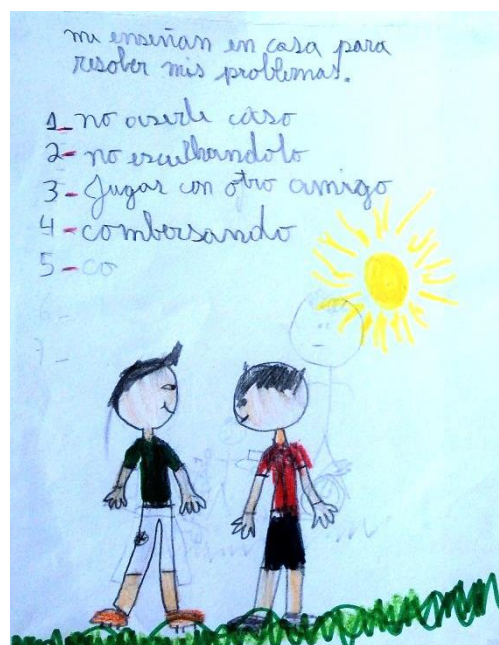 mi enseñan en casa para
resolber mis problemas.
1_ no aserle caso
2- no esculhandolo
3- Jugar con otro amigo
4- combersando
5- co
6-
7-